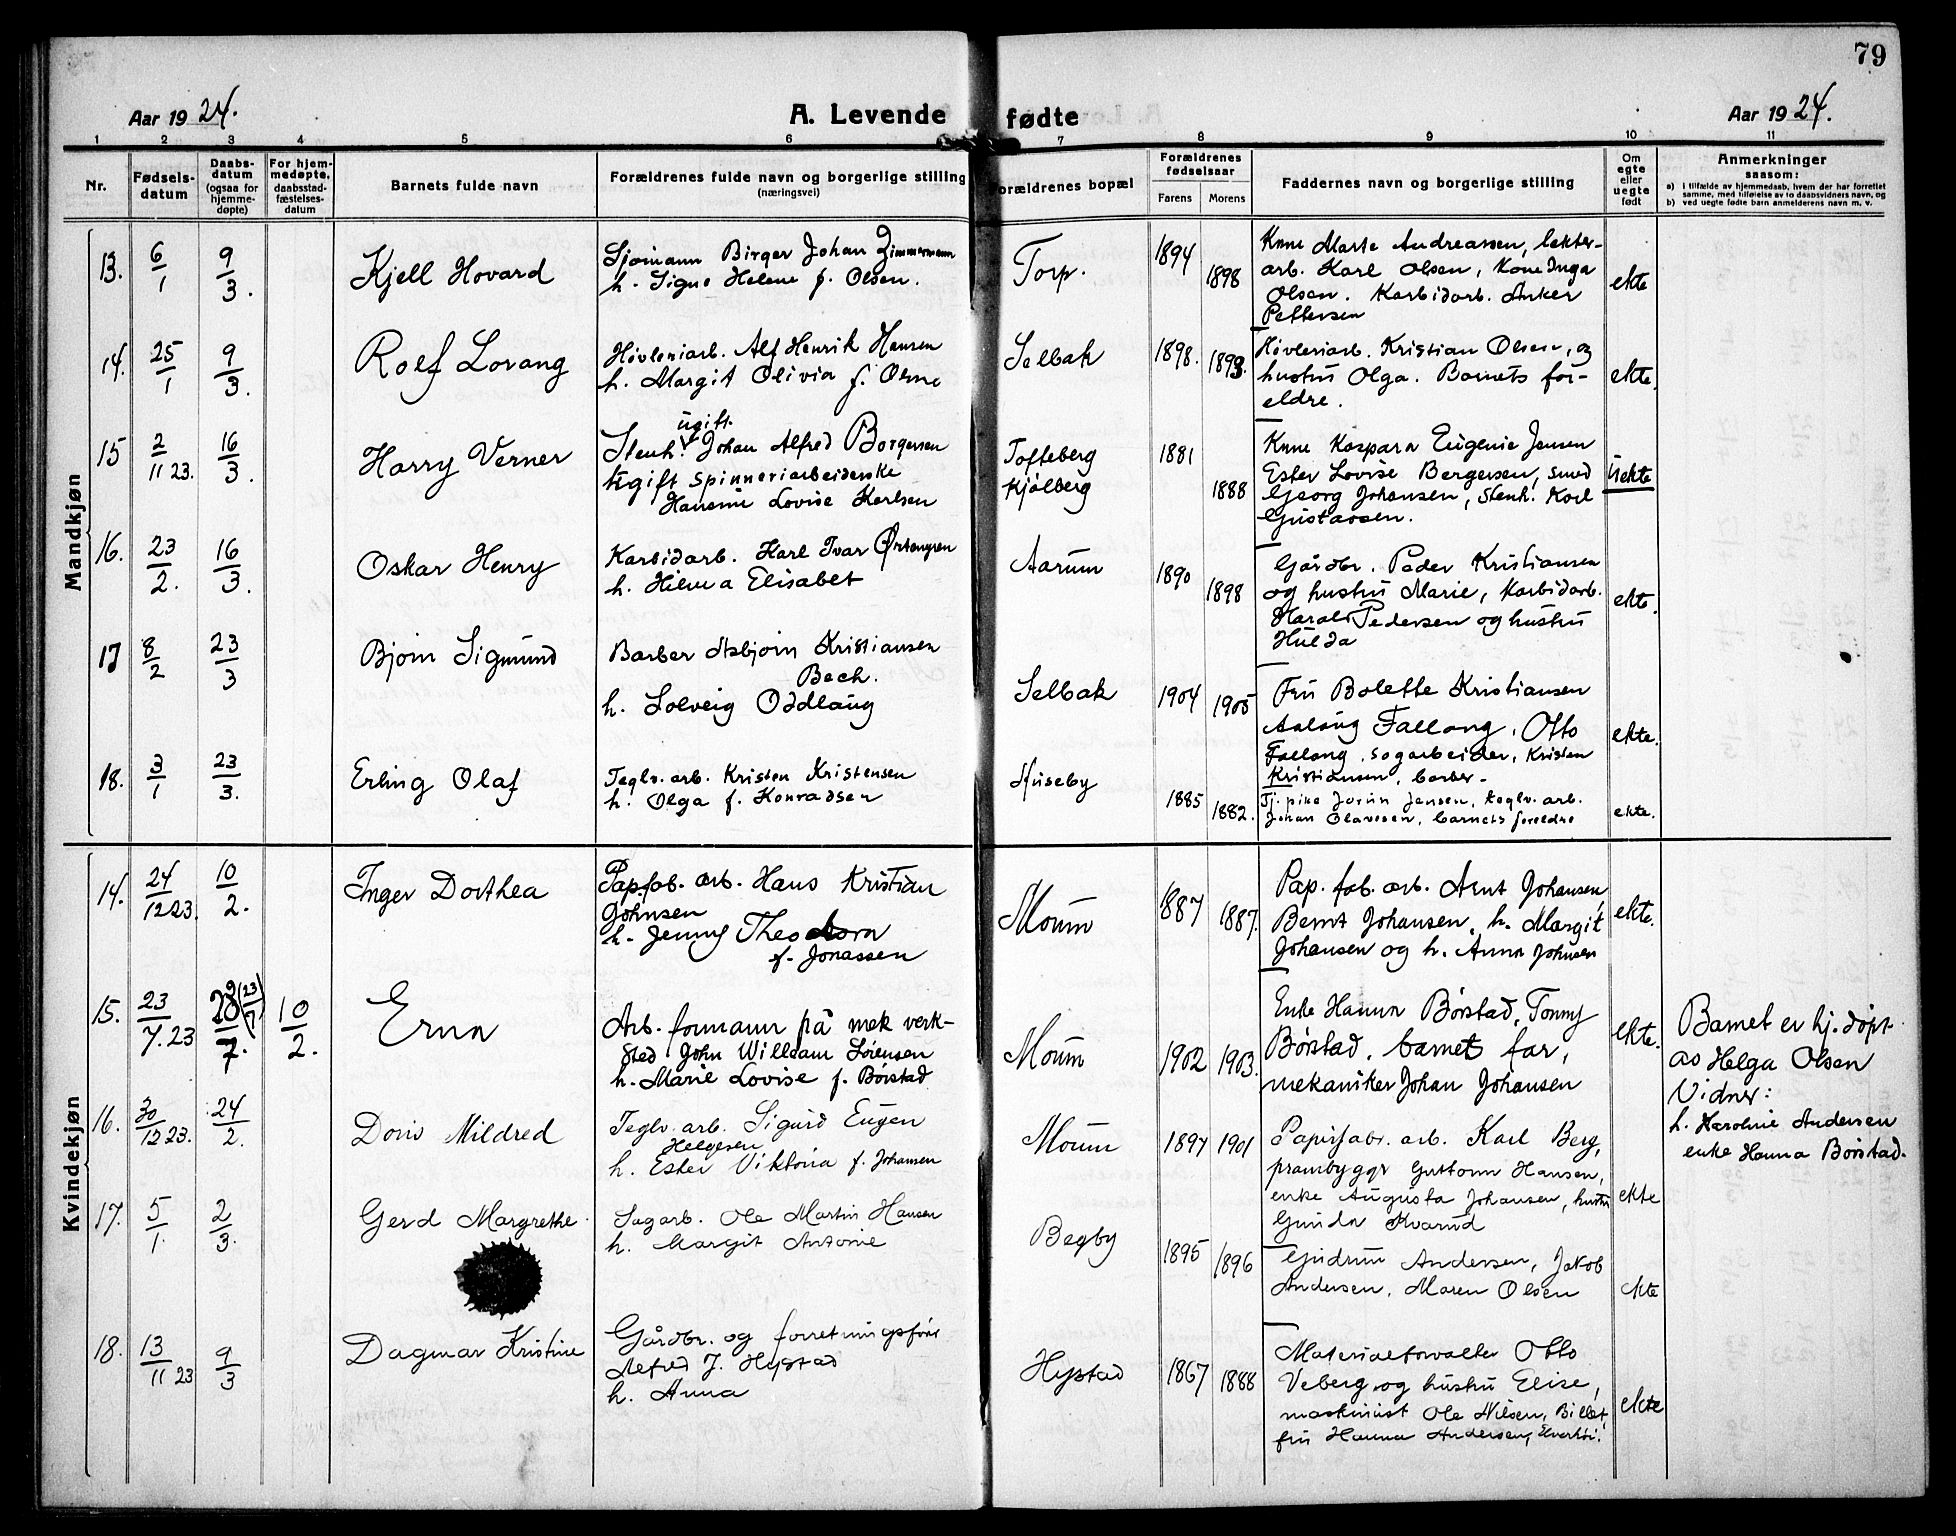 79
Aar 1924.
A. Levende fødte
Aar 1924.
1 2 3 4 5 6 7 8 9 10 11
Nr.
Fødsels-
datum
Daabs-
datum
(ogsaa for
hjemme-
døpte)
For hjem-
medøpte,
daabsstad-
fæstelses-
datum
Barnets fulde navn
Forældrenes fulde navn og borgerlige stilling
(næringsvei)
Forældrenes bopæl
Forældrenes
fødselsaar
Farens
Morens
Faddernes navn og borgerlige stilling
Om
egte
eller
uegte
født
Anmerkninger
saasom:
a) i tilfælde av hjemmedaab, hvem der har forrettet
samme, med tilføielse av to daabsvidners navn, og
b) ved uegte fødte barn anmelderens navn m. v.
Mandkjøn
13. 6/1 9/3. Kjell Hovard
Sjømann Birger Johan Zimmermann
h. Signe Helene f. Olsen.
Torp. 1894 1898
Kone Marte Andreassen,
arb. Karl Olsen, Kone Inga
Olsen. Karbidarb. Anker
Pettersen
ekte
14. 25/1 9/3. Rolf Lorang
Høvleriarb. Alf Henrik Hansen
h. Margit Olivia f. Olsne
Selbak 1898. 1893.
Høvleriarb. Kristian Olsen, og
hustru Olga. Barnets for-
eldre.
ekte.
15 2/11 23. 16/3. Harry Verner
ugift.
Stenh. Johan Alfred Borgersen
Ugift spinneriarbeiderske
Hansine Lovise Karlsen
Tofteberg
Kjølberg
1881 1888
Kone Kaspara Eugenie Jensen
Ester Lovise Bergersen, smed
Georg Johansen, Stenh. Karl
Gustavsen.
Uekte
16. 23/2. 16/3. Oskar Henry
Karbidarb. Karl Ivar Ørtengren
h. Hilma Elisabet
Aarum 1890 1898
Gårdbr. Peder Kristiansen
og hustru Marie, Karbidarb.
Harald Pedersen og hustru
Hulda
ekte.
17 8/2 23/3 Bjørn Sigmund
Barber Asbjørn Kristiansen
Bech.
h. Solveig Oddlaug
Selbak 1904 1905
Fru Bolette Kristiansen
Aslaug Fallang, Otto
Fallang, sagarbeider, Kristen
Kristiansen, barber -
ekte.
18. 3/1 23/3. Erling Olaf
Teglv. arb. Kristen Kristensen
h. Olga f. Konradsen
Huseby 1885 1882.
Tj. pike Jorun Jensen, teglv. arb.
Johan Olavesen, barnets foreldre
ekte.
Kvindekjøn
14. 24/12 23. 10/2. Inger Dorthea
Pap.fab. arb. Hans Kristian
Johnsen
h. Jenny Theodora
f. Jonassen
Moum 1887 1887.
Pap. fab. arb. Arnt Johansen,
Bernt Johansen, h. Margit
Johansen og h. Anna Johnsen
ekte.
15. 23/7. 23 28/7. (23/7) 10/2. Erna
Arb. formann på mek verk-
sted John William Sørensen
h. Marie Lovise f. Børstad
Moum 1902 1903.
Enke Hanna Børstad, Tommy
Børstad, barnet far,
mekaniker Johan Johansen
ekte.
Barnet er hj. døpt
av Helga Olsen
Vidner:
h. Karoline Andersen
enke Hanna Børstad.
16. 30/12 23. 24/2. Doris Mildred
Teglv. arb. Sigurd Eugen
Helgesen
h. Ester Viktoria f. Johansen
Moum 1897 1901
Papirfabr. arb. Karl Berg,
prambyggr Guttorm Hansen,
enke Augusta Johansen, hustru
Gunda Kvarud
ekte
17. 5/1. 2/3. Gerd Margrethe.
Sagarb. Ole Martin Hansen
h. Margit Antonie
Begby 1895 1896
Gudrun Andersen, Jakob
Andersen, Maren Olsen
ekte
18. 13/11 23 9/3 Dagmar Kristine
Gårdbr. og forretningsfører
Alfred J. Hystad
h. Anna
Hystad 1867 1888
Materialforvalter Otto
Veberg og hustru Elise,
maskinist Ole Nilsen, Billet,
fru Hanna Andersen, Elverhøi.
ekte